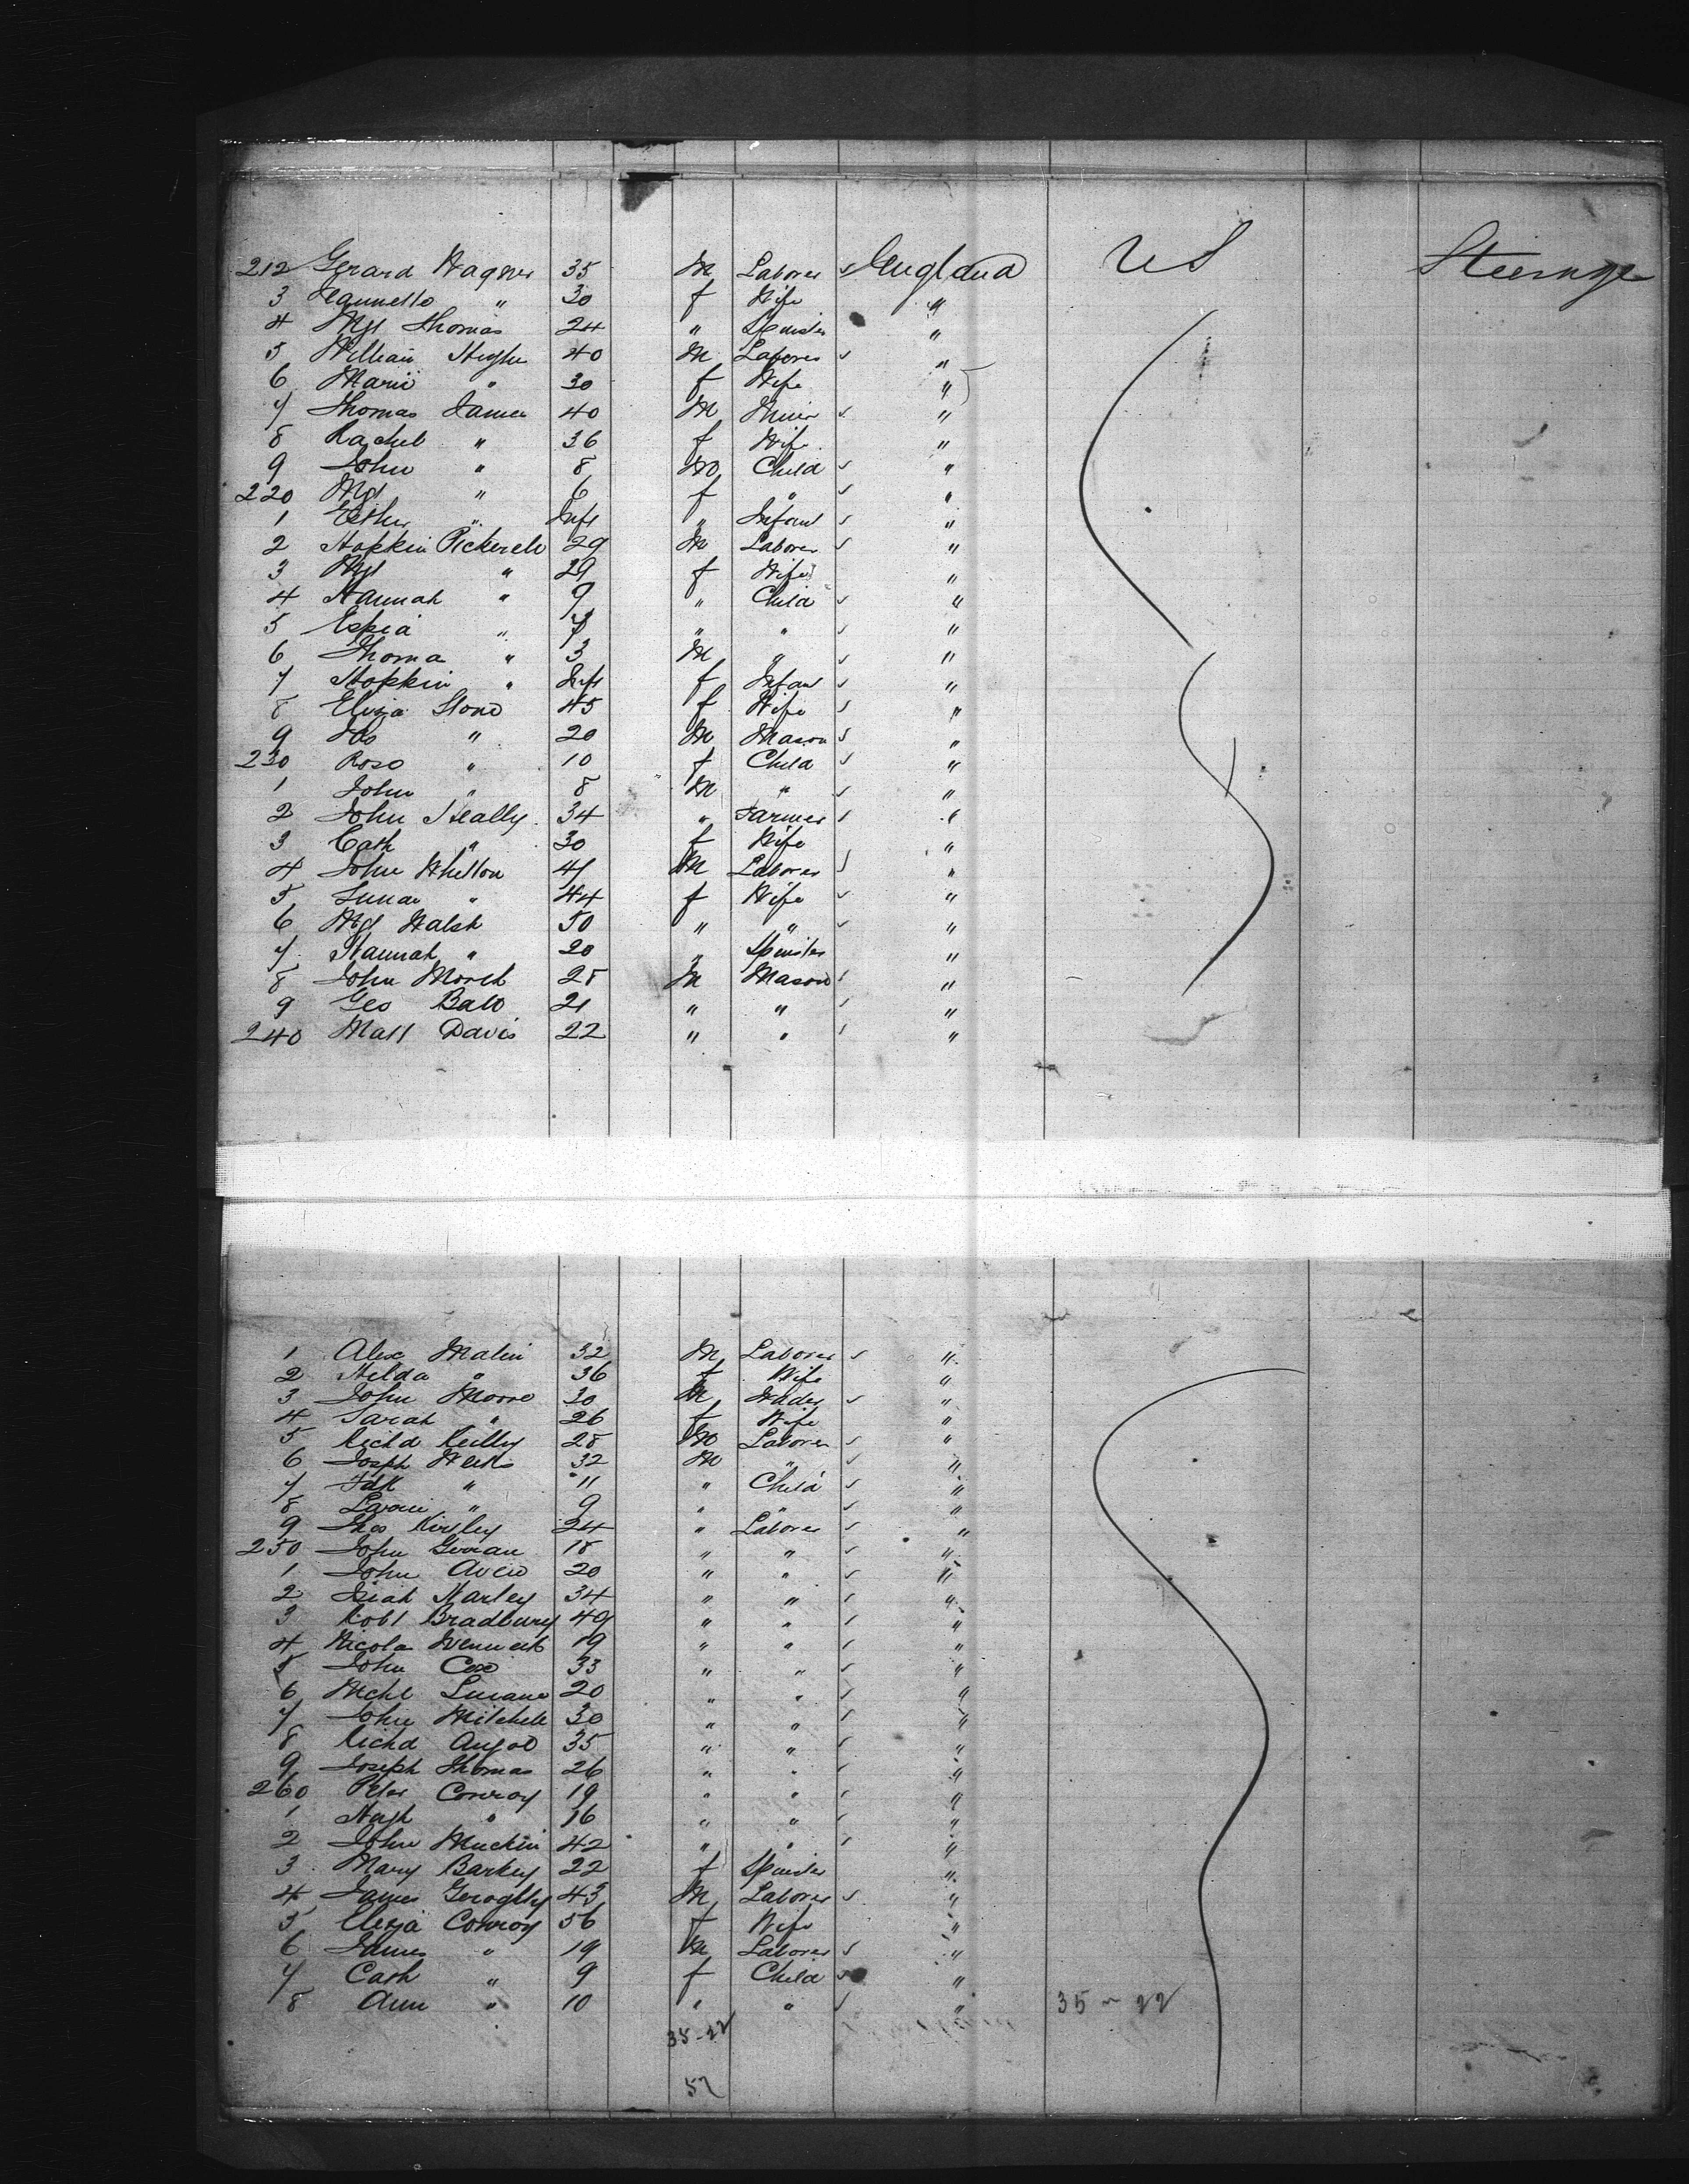 212 Gerard Wagner 35 M Laborer England US Steerage
3 " 30 f Wife "
4 Mgt Thomas 24 " Spinster "
5 William Hughe 40 M Laborer "
6 Marie " 30 f Wife "
7 Thomas James 40 M Miner "
8 Rachel " 36 f Wife "
9 John " 8 M Child "
220 Mgt " 6 f " "
1 Esther " Inft " Infant "
2 Hopkin Pickerele 29 M Laborer "
3 Mgt " 29 f Wife "
4 Hannah " 9 " Child "
5 " 7 " " "
6 Thoma " 3 M " "
7 Hopkin " Inft f Infant "
8 Eliza Stone 45 f Wife "
9 " 20 M Mason "
230 Rose " 10 f Child "
1 John " 8 M " "
2 John Skally 34 " Farmer "
3 Cath " 30 f Wife "
4 John Whelton 41 M Laborer "
5 " 44 f Wife "
6 Mgt Walsh 50 " " "
7 Hannah " 20 " Spinster "
8 John Morch 28 M Mason "
9 Geo Ball 21 " " "
240 Matt Davis 22 " " "
1 Alex Malin 32 M Laborer "
2 Hilda " 36 f Wife "
3 John Moore 30 M "
4 Sarah " 26 f Wife "
5 Richd Reilly 28 M Laborer "
6 Joseph Weeks 32 M " "
7 Fdk " 11 " Child "
8 " 9 " " "
9 Thos Kirsley 24 " Laborer "
250 John 18 " " "
1 John 20 " " "
2 Isiah Harley 34 " " "
3 Robt Bradbury 49 " " "
4 Nicola 19 " " "
5 John Cox 33 " " "
6 Mchl 20 " " "
7 John Mitchell 30 " " "
8 Richd 35 " " "
9 Joseph Thomas 26 " " "
260 Peter Conroy 19 " " "
1 Hugh " 16 " " "
2 John Muckin 42 " " "
3 Mary Barkey 22 f Spinster "
4 James Geroghty 43 M Laborer "
5 Eliza Conroy 56 f Wife "
6 James " 19 M Laborer "
7 Cath " 9 f Child "
8 Ann " 10 " " " 35 - 22
35-22
57